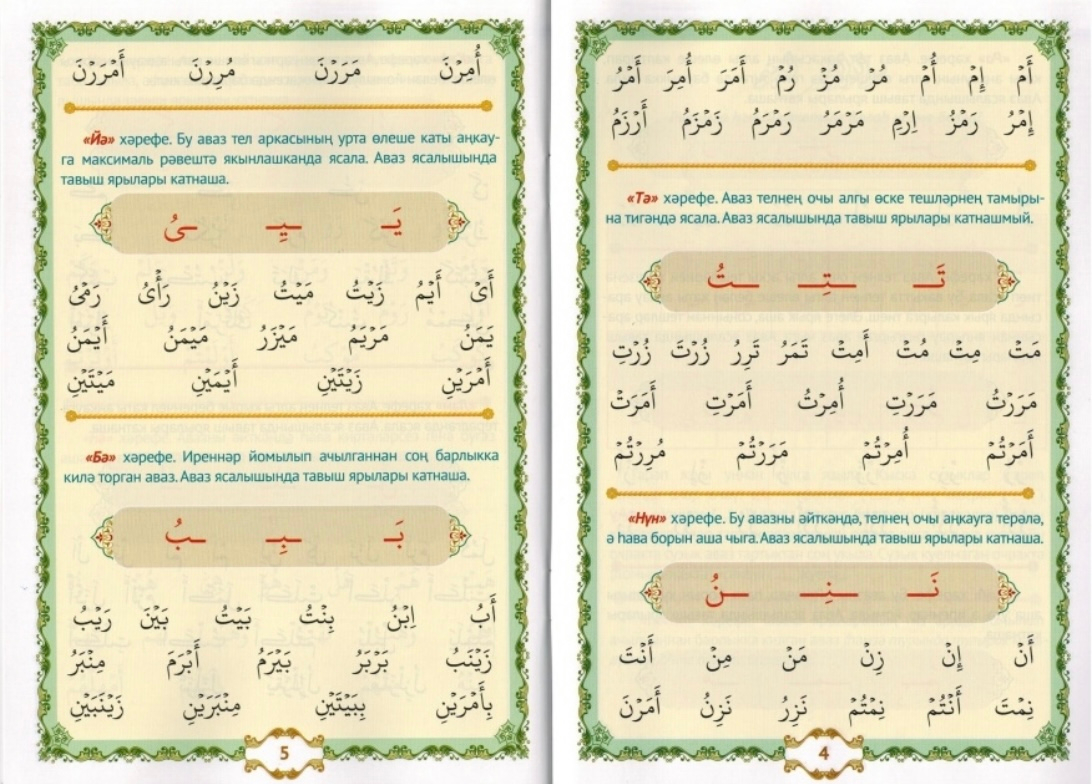 أَمْ إِمْ أُمْ مُرْ مَزْ رُمْ أَمَرَ أُمِرَ أَمْرُ
إِمْرُ رَمْزُ اِرْمِ مَرْمَرُ رَمْرَمُ زَمْزَمُ أَرْزَمُ
«Тә» хәрефе. Аваз телнең очы алгы өске тешләрнең тамыры-
на тигәндә ясала. Аваз ясалышында тавыш ярылары катнашмый.
تَـ ـتِـ ـتُ
مَتْ مِتْ مُتْ أَمِتْ تَمَرُ تَرِرُ زُرْتَ زُرْتِ
مَرَرْتُ مَرَرْتِ أُمِرْتُ أَمَرْتِ أَمَرَتْ
أَمَرْتُمْ أُمِرْتُمْ مَرَرْتُمْ مُرِرْتُمْ
«Нүн» хәрефе. Бу авазны әйткәндә, телнең очы аңкауга терәлә,
ә һава борын аша чыга. Аваз ясалышында тавыш ярылары катнаша.
نَـ ـنِـ ـنُ
أَنْ إِنْ زِنْ مَنْ مِنْ أَنْتَ
نِمْتَ أَنْتُمْ نِمْتُمْ نَزِرُ نَزِنُ أَمَرْنَ
4
أُمِرْنَ مَرَرْنَ مُرِرْنَ أَمْرَرْنَ
«Йә» хәрефе. Бу аваз тел аркасының урта өлеше каты аңкау-
га максималь рәвештә якынлашканда ясала. Аваз ясалышында
тавыш ярылары катнаша.
يَـ ـيِـ ـىُ
أَىْ أَيْمُ زَيْتُ مَيْتُ زَيْنُ رَأْىُ رَمْىُ
يَمَنُ مَرْيَمُ مَيْزَرُ مَيْمَنُ أَيْمَنُ
أَمْرَيْنِ زَيْتَيْنِ أَيْمَيْنِ مَيْتَيْنِ
«Бә» хәрефе. Иреннәр йомылып ачылганнан соң барлыкка
килә торган аваз. Аваз ясалышында тавыш ярылары катнаша.
بَـ ـبِـ ـبُ
أَبُ اِبْنُ بِنْتُ بَيْتُ بَيْنَ رَيْبُ
زَيْنَبُ بَرْبَرُ بَيْرَمُ أَبْرَمَ مِنْبَرُ
بِأَمْرَيْنِ بِبَيْتَيْنِ مِنْبَرَيْنِ زَيْنَبَيْنِ
5